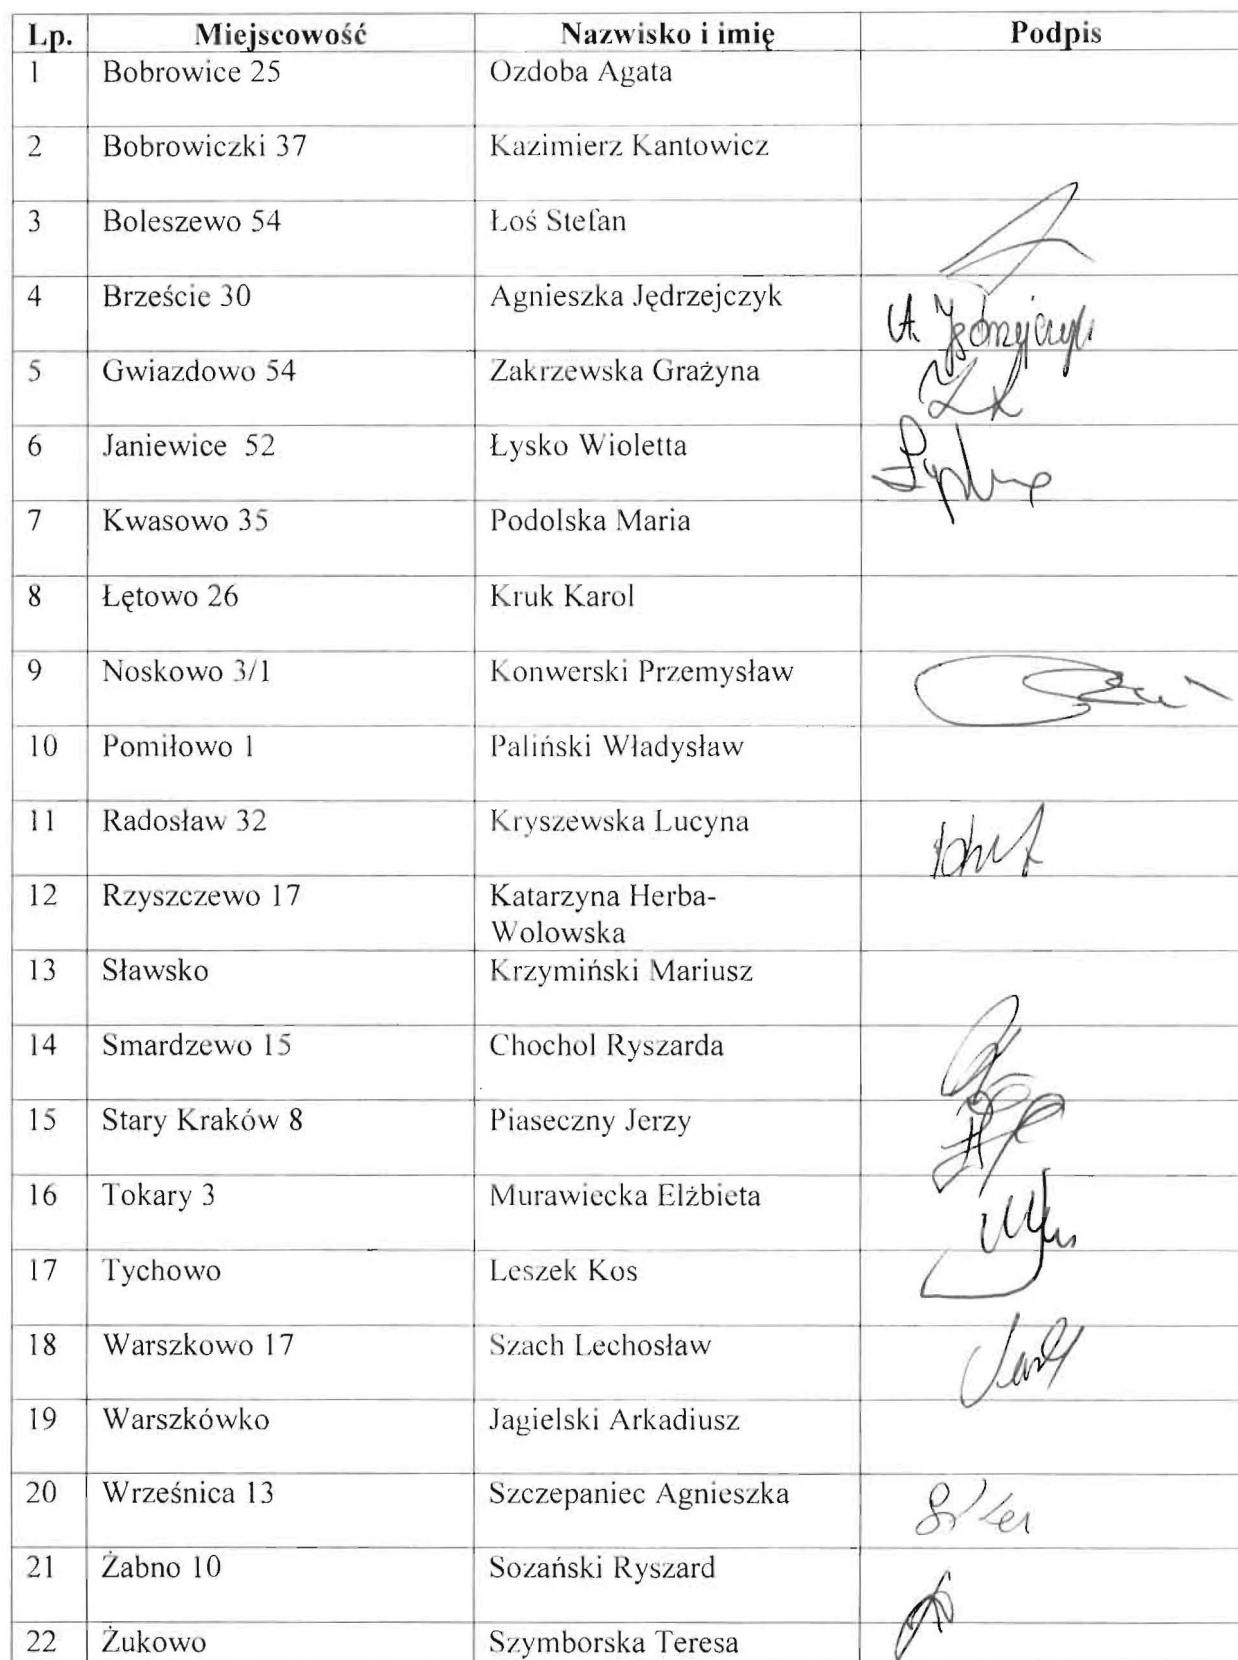 Lp. Miejscowość Nazwisko i imię Podpis
1 Bobrowice 25 Ozdoba Agata
2 Bobrowiczki 37 Kazimierz Kantowicz
3 Boleszewo 54 Łoś Stefan
4 Brzeście 30 Agnieszka Jędrzejczyk
5 Gwiazdowo 54 Zakrzewska Grażyna
6 Janiewice 52 Łysko Wioletta
7 Kwasowo 35 Podolska Maria
8 Łętowo 26 Kruk Karol
9 Noskowo 3/1 Konwerski Przemysław
10 Pomiłowo 1 Paliński Władysław
11 Radosław 32 Kryszewska Lucyna
12 Rzyszczewo 17 Katarzyna Herba-
Wolowska
13 Sławsko Krzymiński Mariusz
14 Smardzewo 15 Chochol Ryszarda
15 Stary Kraków 8 Piaseczny Jerzy
16 Tokary 3 Murawiecka Elżbieta
17 Tychowo Leszek Kos
18 Warszkowo 17 Szach Lechosław
19 Warszkówko Jagielski Arkadiusz
20 Wrześnica 13 Szczepaniec Agnieszka
21 Żabno 10 Sozański Ryszard
22 Żukowo Szymborska Teresa